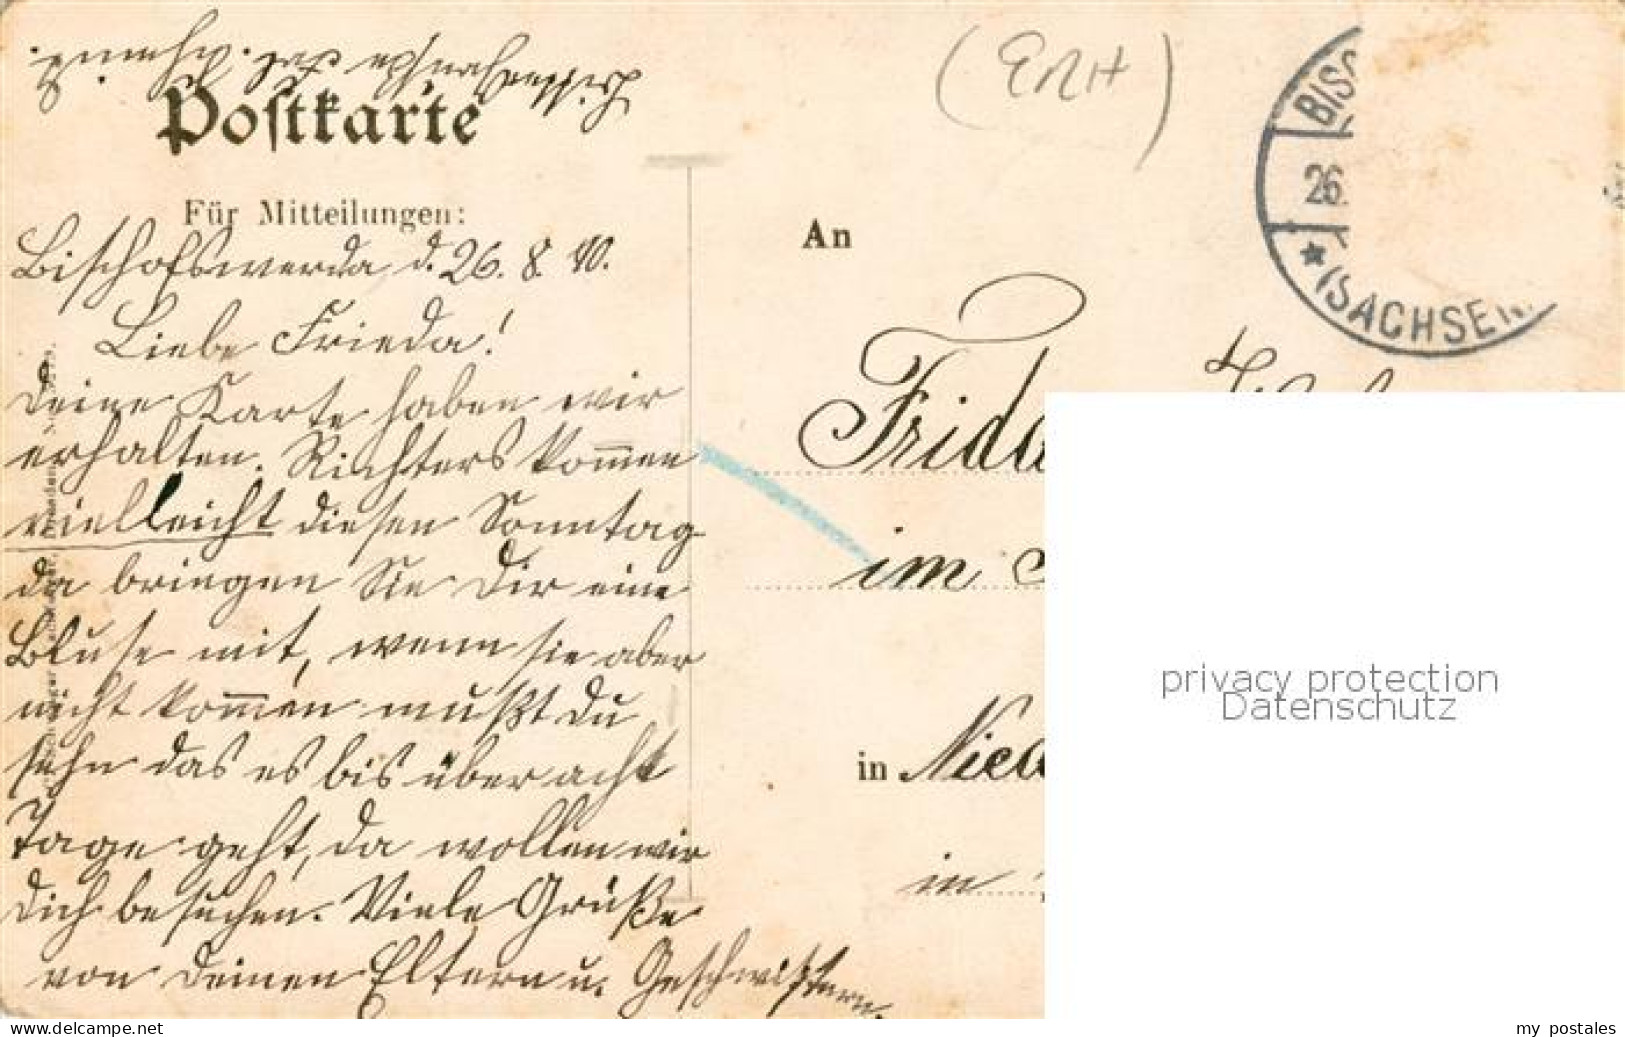 Postkarte
Für Mitteilungen:
Bischofswerda d. 26. 8. 10.
Liebe Frieda!
Deine Karte haben wir
erhalten. Richters kom̅en
vielleicht diesen Sonntag
da bringen Sie Dir eine
Bluse mit, wenn sie aber
nicht kom̅en mußt Du
sehn das es bis über acht
Tage geht, da wollen wir
Dich besuchen. Viele Grüße
von Deinen Eltern u. Geschwistern
(ERH)
BISC
26.
* (SACHSEN)
An
Frida
im
in Nied
in
privacy protection
Datenschutz
https://www.ansichtskartenversand.com
my postales